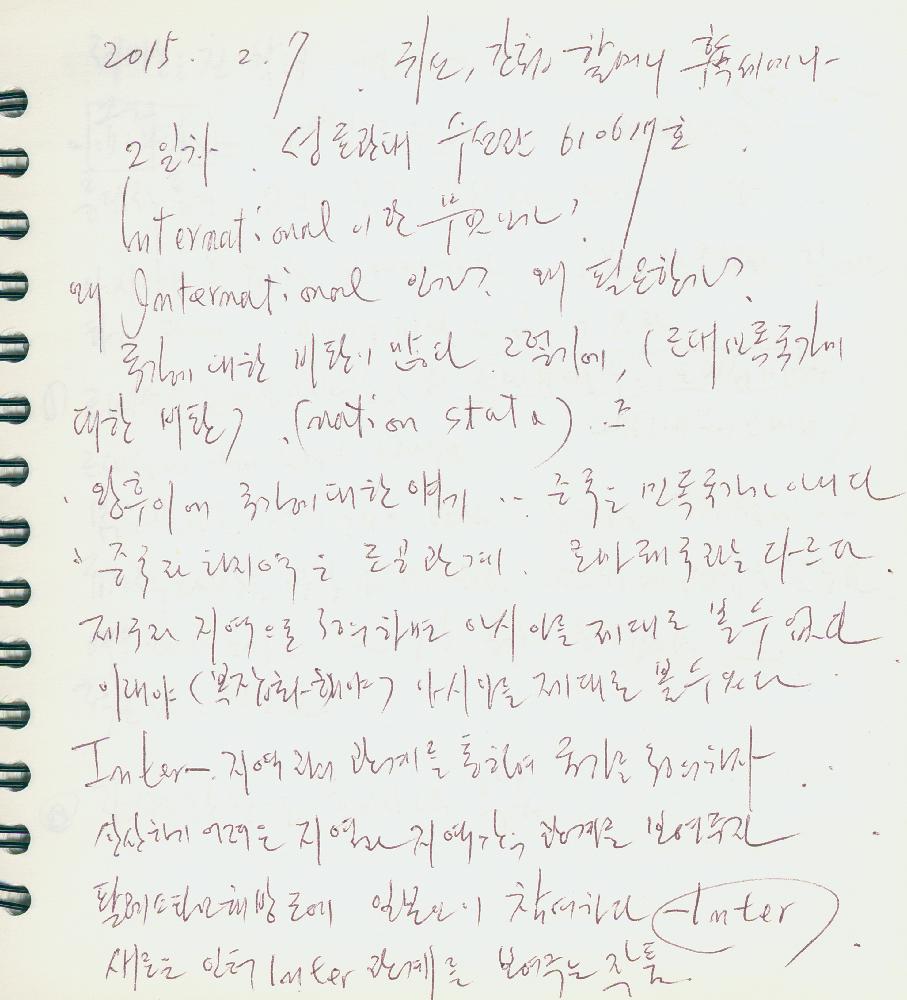 2015. 2. 7 귀신, 간첩, 할머니 세미나
2일차. 성균관대 수선관 61061호
International 이란 무엇인가?
왜 International 인가? 왜 필요한가?
국가에 대한 비판이 많다. 그렇기에, (근대 민족국가에
대한 비판) (nation state)
· 왕후이에 국가에 대한 얘기 .. 중국은 민족국가가 아니다
· 중국과 타지역은 조공관계. 로마제국과는 다르다.
제국과 지역으로 하면 아시아를 제대로 볼 수 없다
이래야 (복잡화해야) 아시아를 제대로 볼 수 있다
Inter- 지역과의 관계를 통하여 국가를 하자.
상상하기 어려운 지역과 지역간의 관계를 보여주자
팔레스타인해방운동에 일본인이 참여하다 -Inter
새로운 인터 Inter 관계를 보여주는 작품.